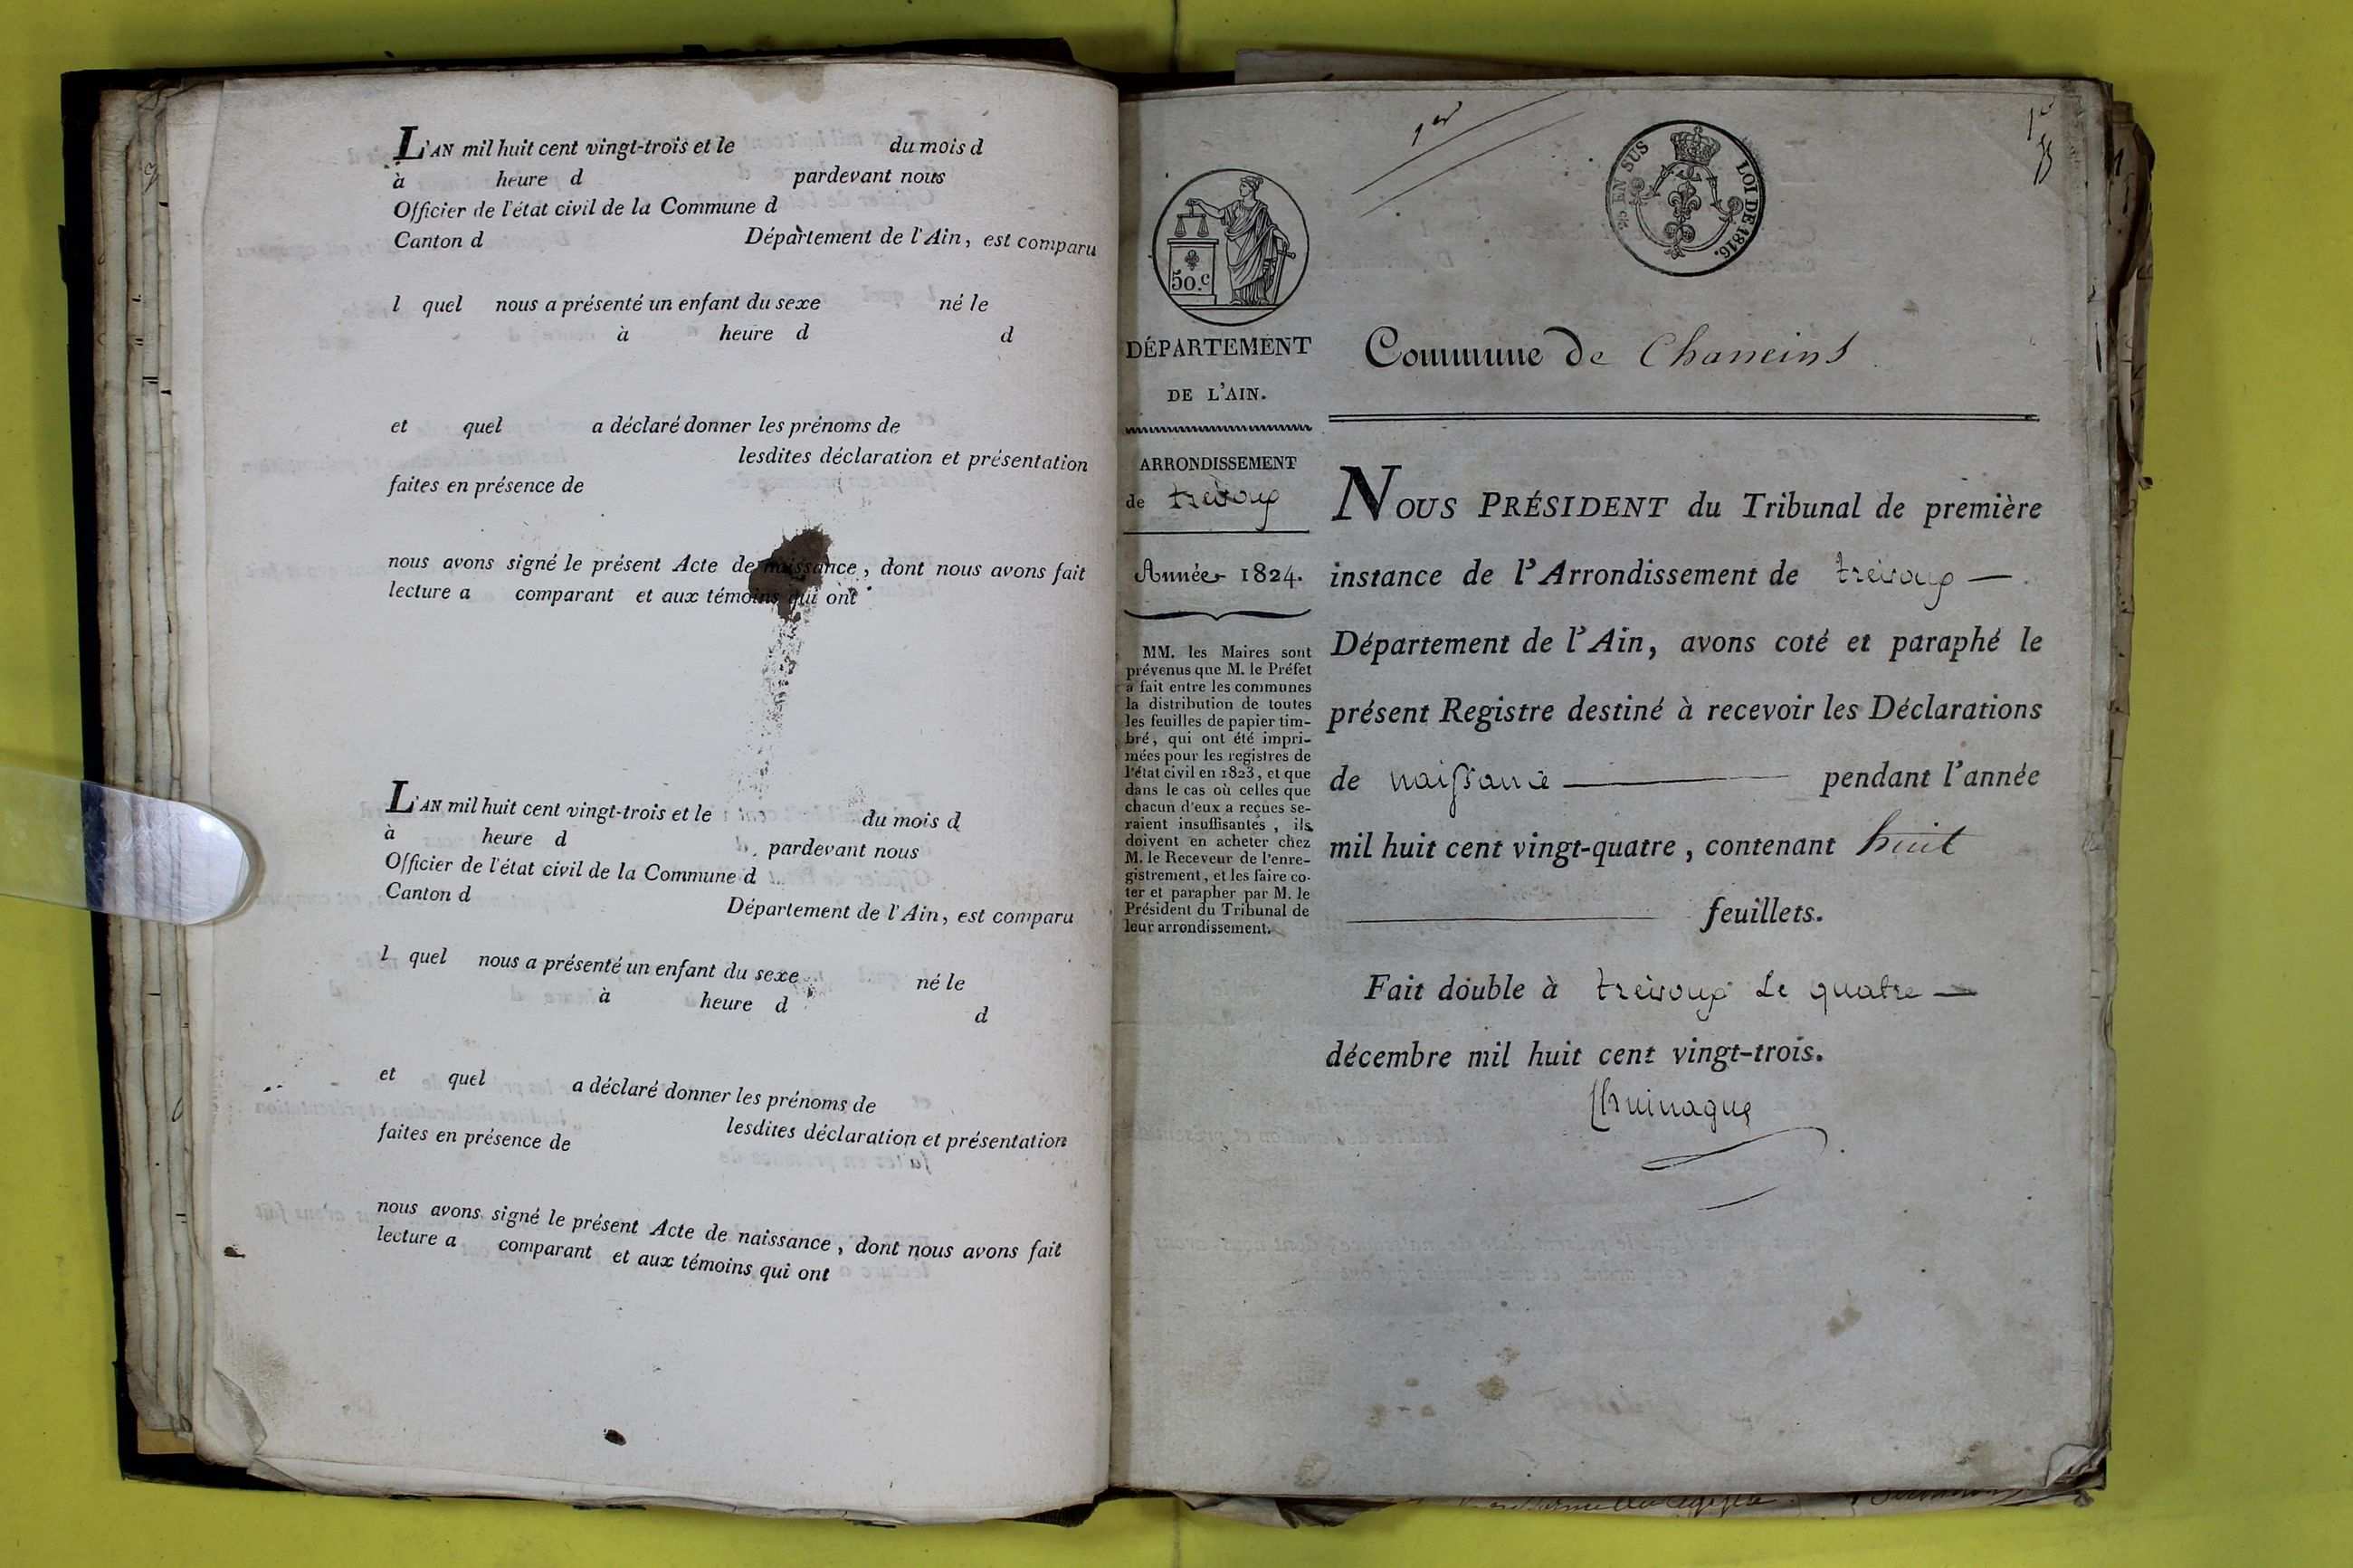 L'AN mil huit cent vingt-trois et le du mois d
à heure d pardevant nous
Officier de l'état civil de la Commune d
Canton d Département de l'Ain, est comparu
l quel nous a présenté un enfant du sexe né le
à heure d d
et quel a déclaré donner les prénoms de
lesdites déclaration et présentation
faites en présence de
nous avons signé le présent Acte de naissance, dont nous avons fait
lecture a comparant et aux témoins qui ont
L'AN mil huit cent vingt-trois et le du mois d
à heure d pardevant nous
Officier de l'état civil de la Commune d
Canton d Département de l'Ain, est comparu
l quel nous a présenté un enfant du sexe né le
à heure d d
et quel a déclaré donner les prénoms de
lesdites déclaration et présentation
faites en présence de
nous avons signé le présent Acte de naissance, dont nous avons fait
lecture a comparant et aux témoins qui ont
1er
EN SUS LOI DE 1816.
50.c
DÉPARTEMENT
DE L'AIN.
ARRONDISSEMENT
de trévoux
Année 1824.
MM. les Maires sont
prévenus que M. le Préfet
a fait entre les communes
la distribution de toutes
les feuilles de papier tim-
bré, qui ont été impri-
mées pour les registres de
l'état civil en 1823, et que
dans le cas où celles que
chacun d'eux a reçues se-
raient insuffisantes, ils
doivent en acheter chez
M. le Receveur de l'enre-
gistrement, et les faire co-
ter et parapher par M. le
Président du Tribunal de
leur arrondissement.
Commune de Chaneins
NOUS PRÉSIDENT du Tribunal de première
instance de l'Arrondissement de trévoux —
Département de l'Ain, avons coté et paraphé le
présent Registre destiné à recevoir les Déclarations
de naissance — pendant l'année
mil huit cent vingt-quatre, contenant huit
— feuillets.
Fait double à trévoux Le quatre —
décembre mil huit cent vingt-trois.